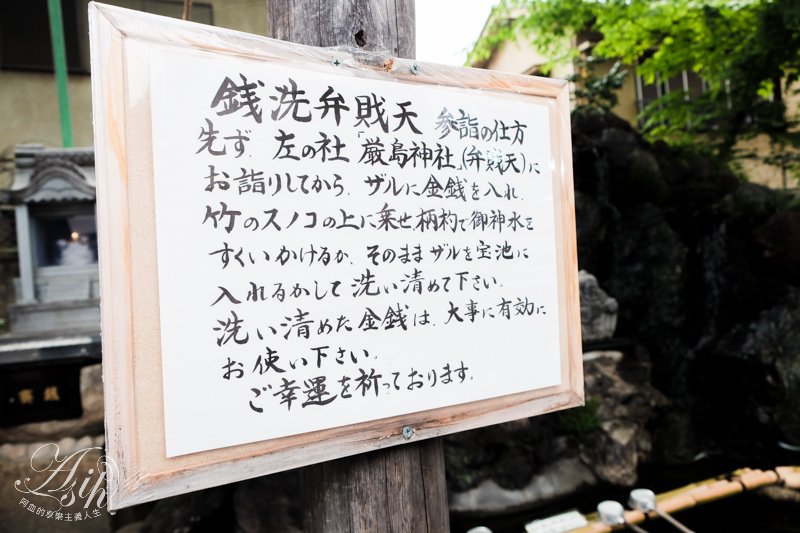 銭洗弁賎天 参詣の仕方
先ず、左の社「厳島神社」(弁賎天)に
お詣りしてから、ザルに金銭を入れ、
竹のスノコの上に乗せ、柄杓で御神水を
すくいかけるか、そのままザルを宝池に
入れるかして洗い清めて下さい。
洗い清めた金銭は、大事に有効に
お使い下さい。
ご幸運を祈っております。
Asin
阿血的享樂主義人生